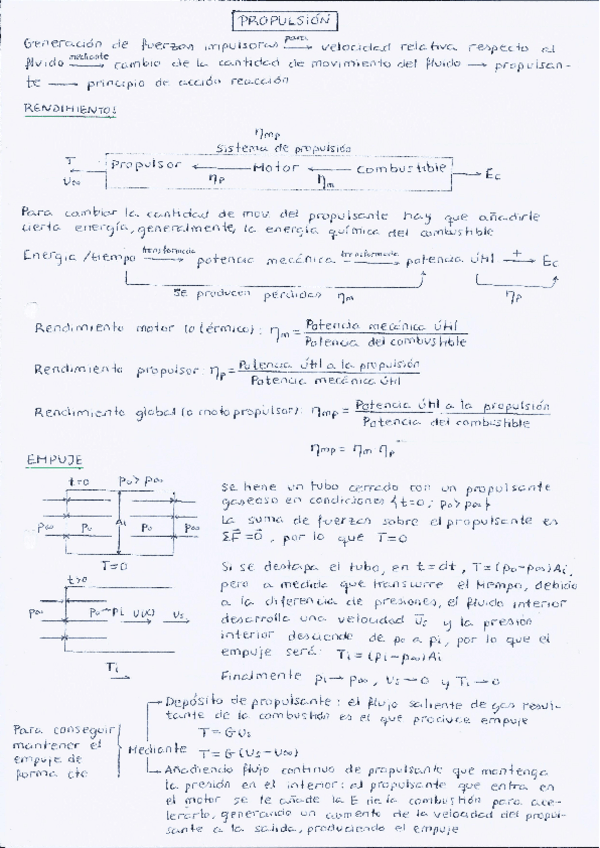 PROPULSIÓN
Generación de fuerzas impulsoras para → velocidad relativa respecto al
fluido mediante → cambio de la cantidad de movimiento del fluido → propulsan-
te → principio de acción reacción
RENDIMIENTO:
ηmp
Sistema de propulsión
T Propulsor ← Motor ← combustible → Ec
V∞ ηp ηm
Para cambiar la cantidad de mov del propulsante hay que añadirle
cierta energía, generalmente, la energía química del combustible
Energía/tiempo transformada → potencia mecánica transformada → potencia útil + → Ec
se producen pérdidas ηm ηp
Rendimiento motor (o térmico): ηm = Potencia mecánica útil
Potencia del combustible
Rendimiento propulsor: ηp = Potencia útil a la propulsión
Potencia mecánica útil
Rendimiento global (o motopropulsor): ηmp = Potencia útil a la propulsión
Potencia del combustible
ηmp = ηm ηp
EMPUJE
t=0 p0 > p∞
p∞ p0 Ai p0 p∞
T=0
Se tiene un tubo cerrado con un propulsante
gaseoso en condiciones {t=0; p0 > p∞}
La suma de fuerzas sobre el propulsante es
ΣF̄ = 0̄, por lo que T=0
t>0
p∞ p0→pi U(x) Us
Ti
Si se destapa el tubo, en t=dt, T=(p0-p∞)Ai,
pero a medida que transcurre el tiempo, debido
a la diferencia de presiones, el fluido interior
desarrolla una velocidad Ūs y la presión
interior desciende de p0 a pi, por lo que el
empuje será: Ti = (pi-p∞)Ai
Finalmente pi → p∞, Us → 0 y Ti → 0
Para conseguir
mantener el
empuje de
forma cte
Mediante
Depósito de propulsante: el flujo saliente de gas resul-
tante de la combustión es el que produce empuje
T = GUs
T = G(Us - U∞)
Añadiendo flujo continuo de propulsante que mantenga
la presión en el interior: al propulsante que entra en
el motor se le añade la E de la combustión para ace-
lerarlo, generando un aumento de la velocidad del propul-
sante a la salida, produciendo el empuje